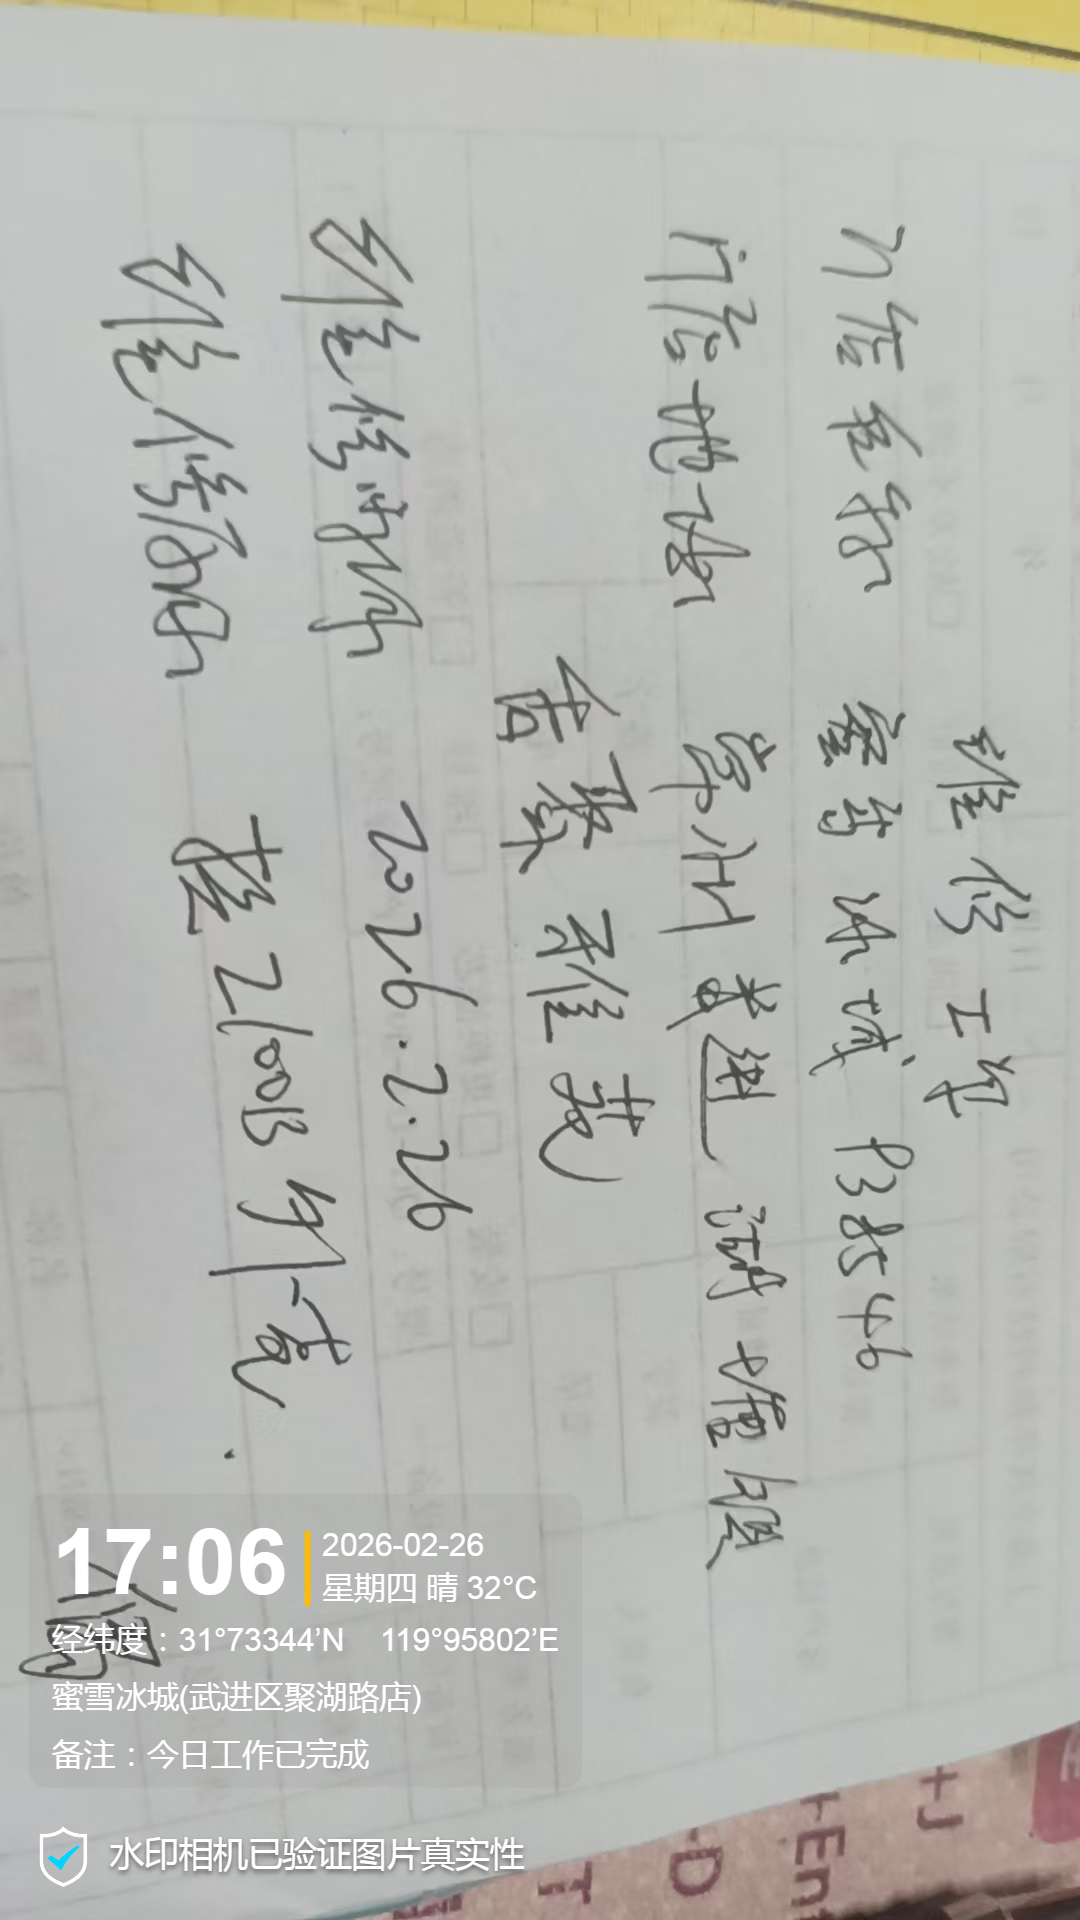 维修工单
门店名称 蜜雪冰城 P38546
门店地址 常州 武进 湖塘镇
吉聚雅苑
到维修时间 2026.2.26
到维修 2100B 外壳
17:06
2026-02-26
星期四 晴 32°C
经纬度：31°73344'N 119°95802'E
蜜雪冰城(武进区聚湖路店)
备注：今日工作已完成
水印相机已验证图片真实性
+J
+En
-D
T